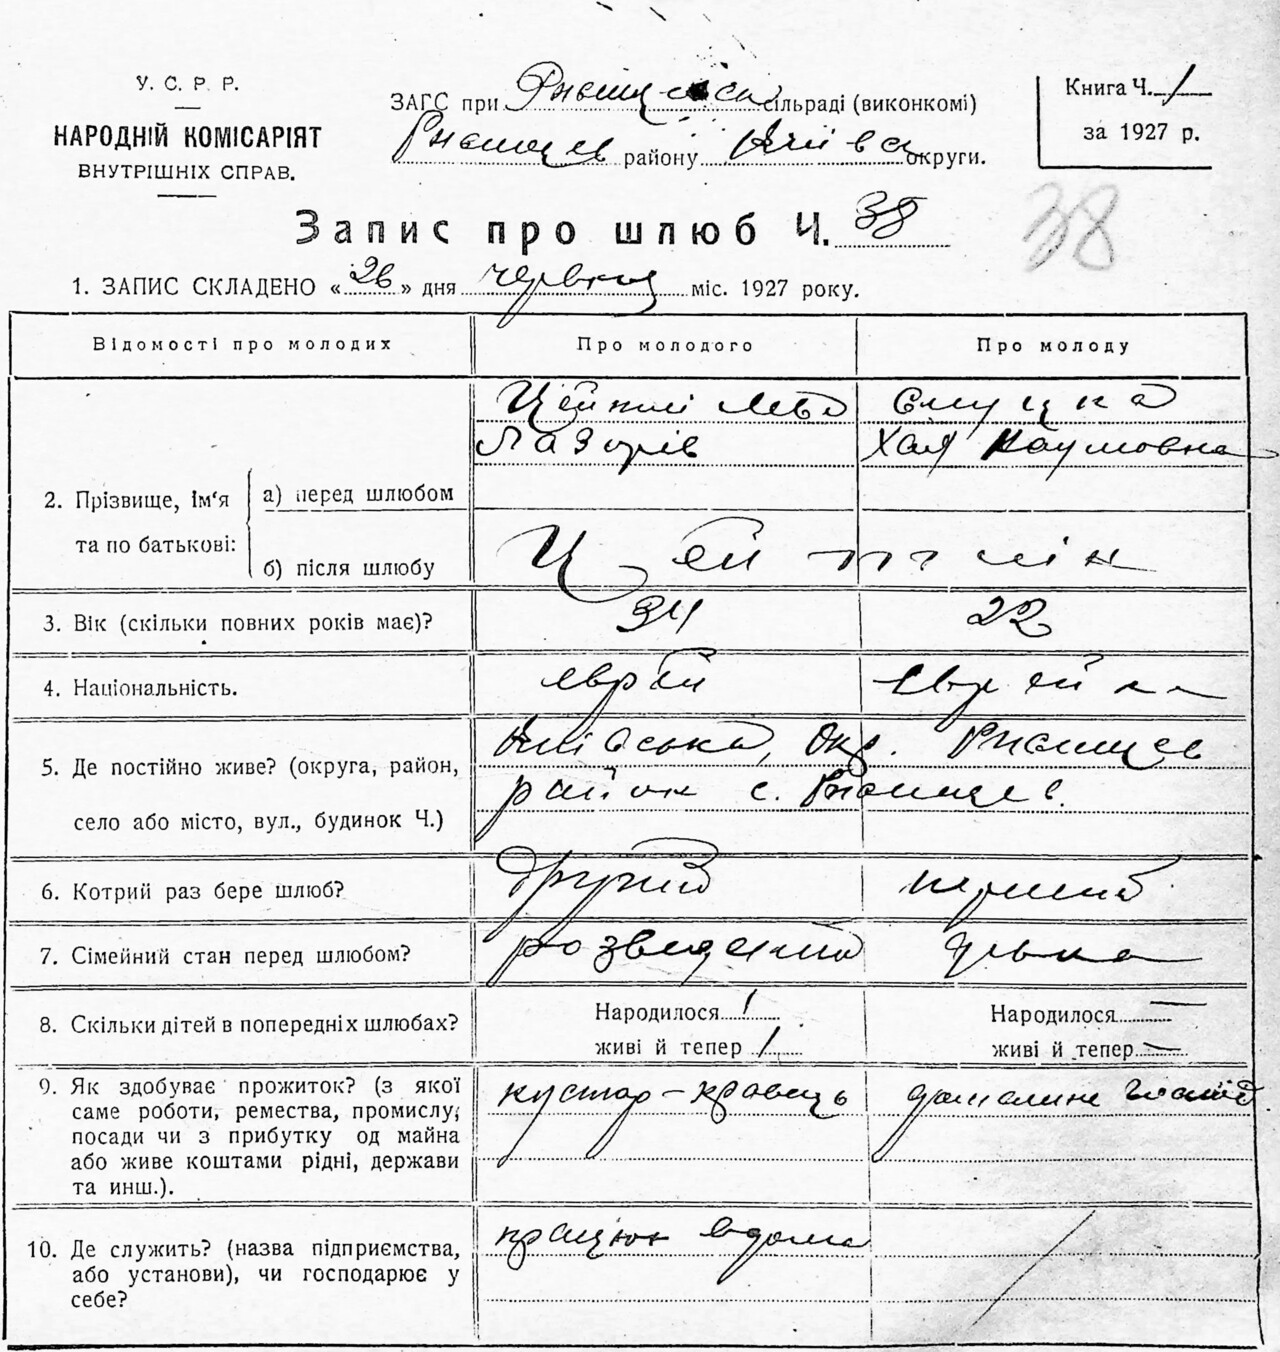 У. С. Р. Р.
НАРОДНІЙ КОМІСАРІЯТ
ВНУТРІШНІХ СПРАВ.
ЗАГС при сільраді (виконкомі)
Ржищев району Київс округи.
Книга Ч. 1
за 1927 р.
Запис про шлюб Ч. 38
38
1. ЗАПИС СКЛАДЕНО «26» дня червня міс. 1927 року.
Відомості про молодих
Про молодого
Про молоду
2. Прізвище, ім'я та по батькові:
а) перед шлюбом
Лазорів
Слуцка
Хая Наумовна
б) після шлюбу
Цейтлін
3. Вік (скільки повних років має)?
34
22
4. Національність.
Єврей
Єврейка
5. Де постійно живе? (округа, район,
село або місто, вул., будинок Ч.)
Київська, Окр. Ржищев
район с. Ржищев.
6. Котрий раз бере шлюб?
другий
перший
7. Сімейний стан перед шлюбом?
розведений
дівка
8. Скільки дітей в попередніх шлюбах?
Народилося 1
живі й тепер 1
Народилося —
живі й тепер —
9. Як здобуває прожиток? (з якої
саме роботи, ремества, промислу,
посади чи з прибутку од майна
або живе коштами рідні, держави
та инш.).
кустар-кравець
10. Де служить? (назва підприємства,
або установи), чи господарює у
себе?
працює вдома